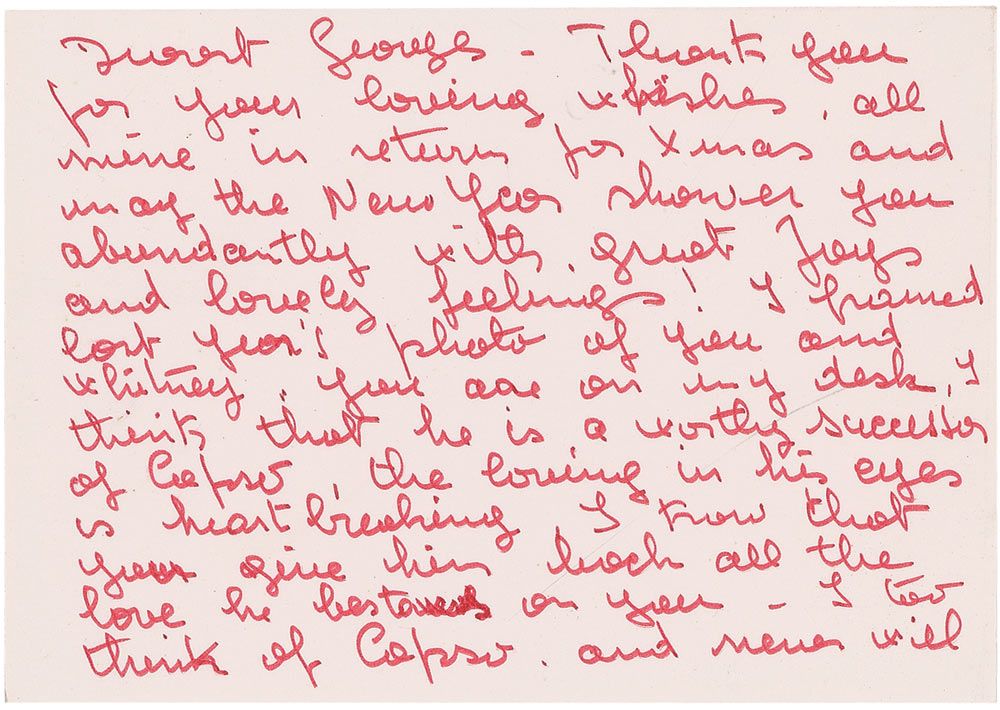 Dearest George - Thank you
for your loving wishes, all
mine in return for Xmas and
may the New Year shower you
abundantly with great Joys
and lovely feelings! I framed
last year's photo of you and
Whitney, you are on my desk, I
think that he is a worthy successor
of Capso, the loving in his eyes
is heart breaking, I know that
you give him back all the
love he bestows on you - I too
think of Capso. and never will